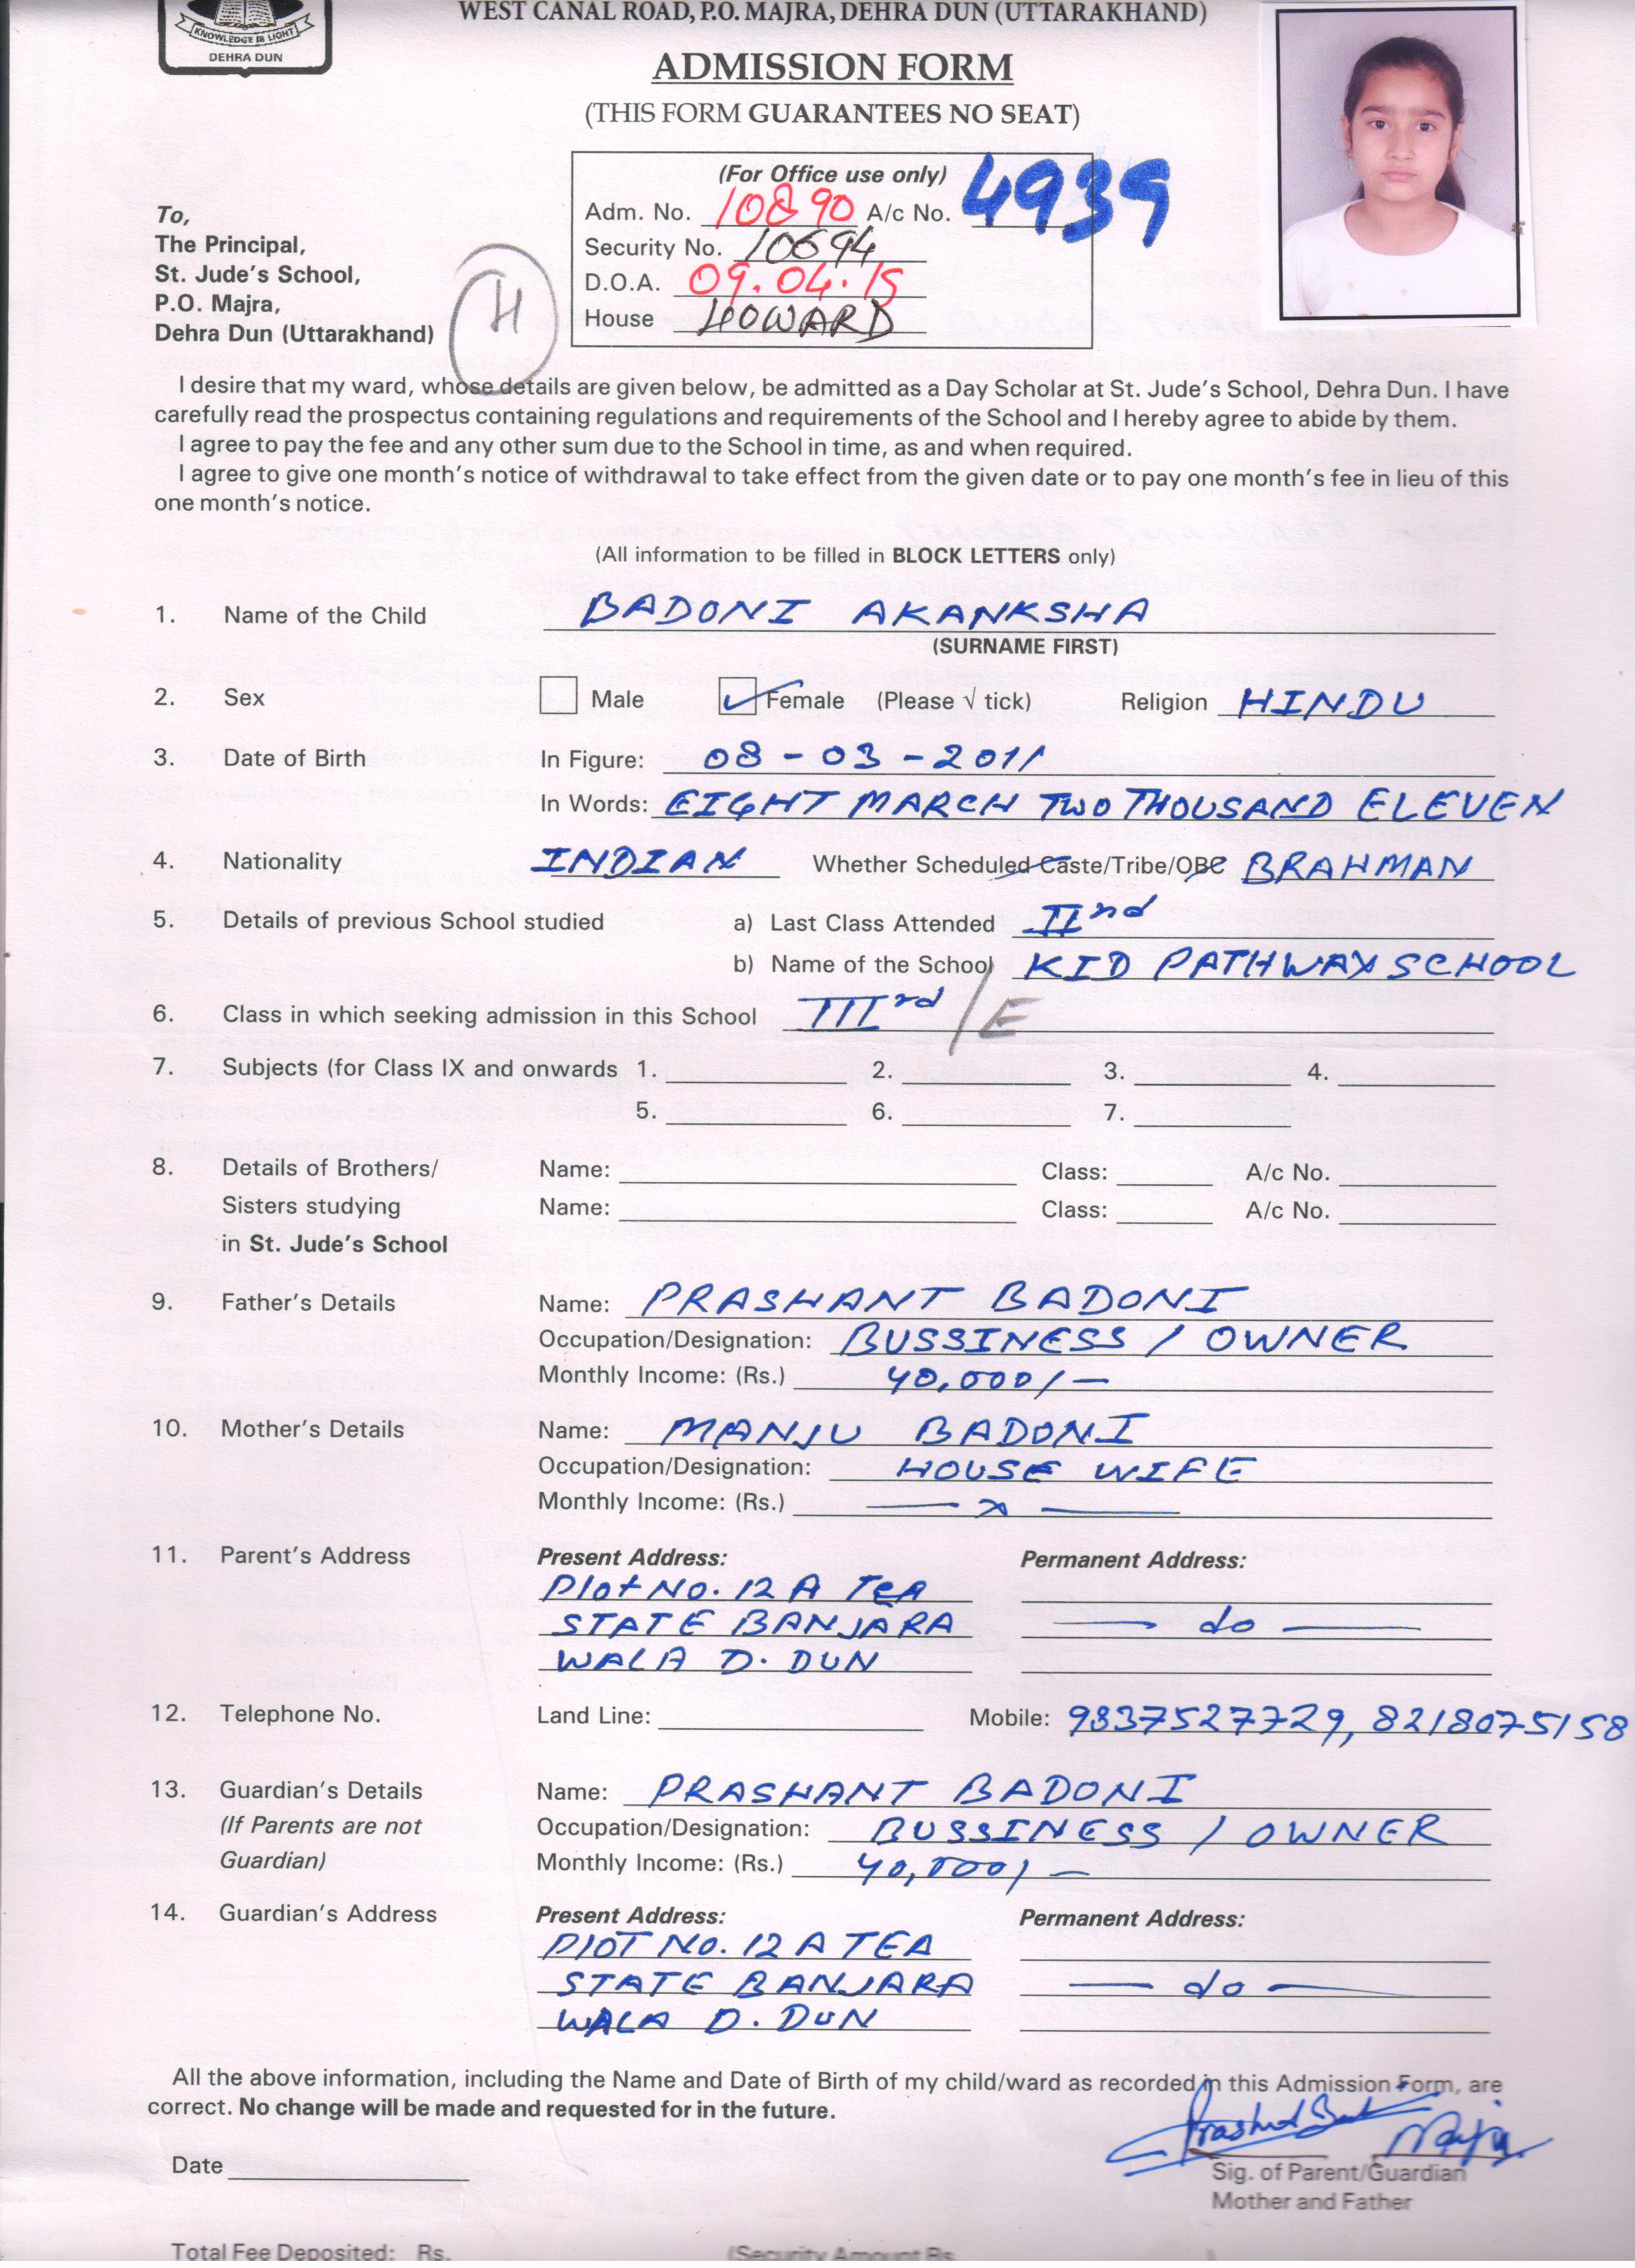 KNOWLEDGE IS LIGHT
DEHRA DUN
WEST CANAL ROAD, P.O. MAJRA, DEHRA DUN (UTTARAKHAND)
ADMISSION FORM
(THIS FORM GUARANTEES NO SEAT)
(For Office use only)
Adm. No. 10890 A/c No. 4939
Security No. 10694
D.O.A. 09.04.15
House HOWARD
H
To,
The Principal,
St. Jude's School,
P.O. Majra,
Dehra Dun (Uttarakhand)
I desire that my ward, whose details are given below, be admitted as a Day Scholar at St. Jude's School, Dehra Dun. I have
carefully read the prospectus containing regulations and requirements of the School and I hereby agree to abide by them.
I agree to pay the fee and any other sum due to the School in time, as and when required.
I agree to give one month's notice of withdrawal to take effect from the given date or to pay one month's fee in lieu of this
one month's notice.
(All information to be filled in BLOCK LETTERS only)
1. Name of the Child BADONI AKANKSHA
(SURNAME FIRST)
2. Sex Male Female (Please √ tick) Religion HINDU
3. Date of Birth In Figure: 08-03-2011
In Words: EIGHT MARCH TWO THOUSAND ELEVEN
4. Nationality INDIAN Whether Scheduled Caste/Tribe/OBC BRAHMAN
5. Details of previous School studied a) Last Class Attended IInd
b) Name of the School KID PATHWAY SCHOOL
6. Class in which seeking admission in this School IIIrd/E
7. Subjects (for Class IX and onwards 1. 2. 3. 4.
5. 6. 7.
8. Details of Brothers/ Name: Class: A/c No.
Sisters studying Name: Class: A/c No.
in St. Jude's School
9. Father's Details Name: PRASHANT BADONI
Occupation/Designation: BUSSINESS / OWNER
Monthly Income: (Rs.) 40,000/-
10. Mother's Details Name: MANJU BADONI
Occupation/Designation: HOUSE WIFE
Monthly Income: (Rs.) — x —
11. Parent's Address Present Address: Permanent Address:
Plot NO. 12 A TeA
STATE BANJARA — do —
WALA D. DUN
12. Telephone No. Land Line: Mobile: 9837527729, 8218075158
13. Guardian's Details Name: PRASHANT BADONI
(If Parents are not Occupation/Designation: BUSSINESS / OWNER
Guardian) Monthly Income: (Rs.) 40,000/-
14. Guardian's Address Present Address: Permanent Address:
PlOT NO. 12 A TEA
STATE BANJARA — do —
WALA D. DUN
All the above information, including the Name and Date of Birth of my child/ward as recorded in this Admission Form, are
correct. No change will be made and requested for in the future.
Date
Sig. of Parent/Guardian
Mother and Father
Total Fee Deposited: Rs. (Security Amount Rs.